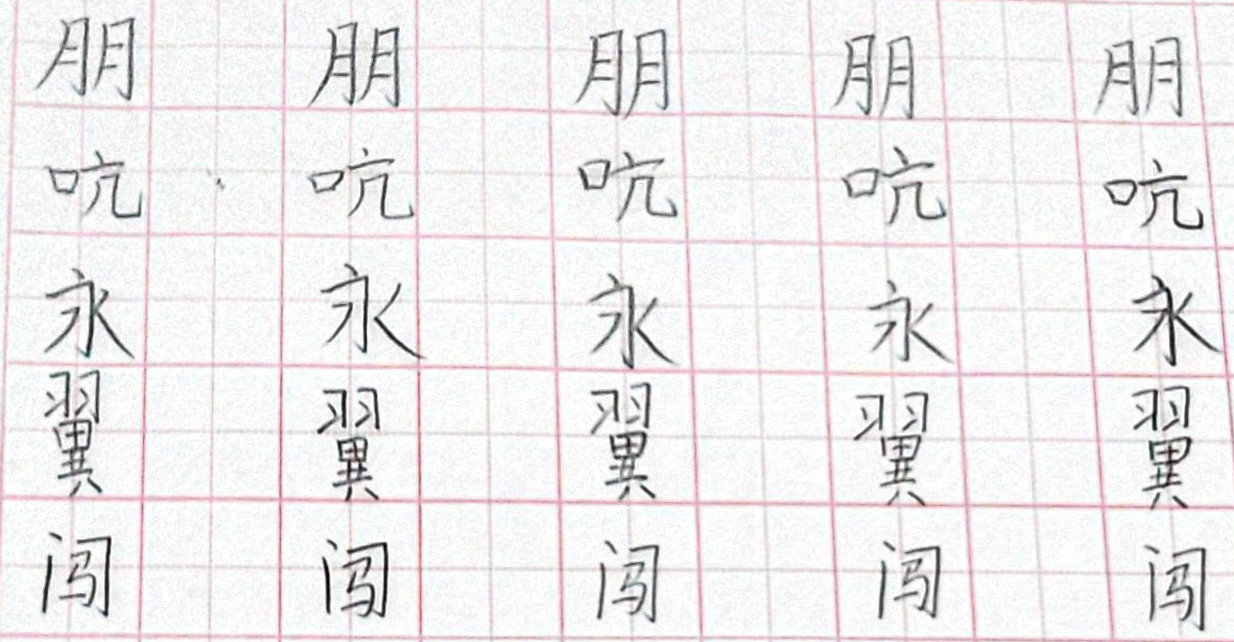 朋 朋 朋 朋 朋
吭 吭 吭 吭 吭
永 永 永 永 永
翼 翼 翼 翼 翼
闯 闯 闯 闯 闯